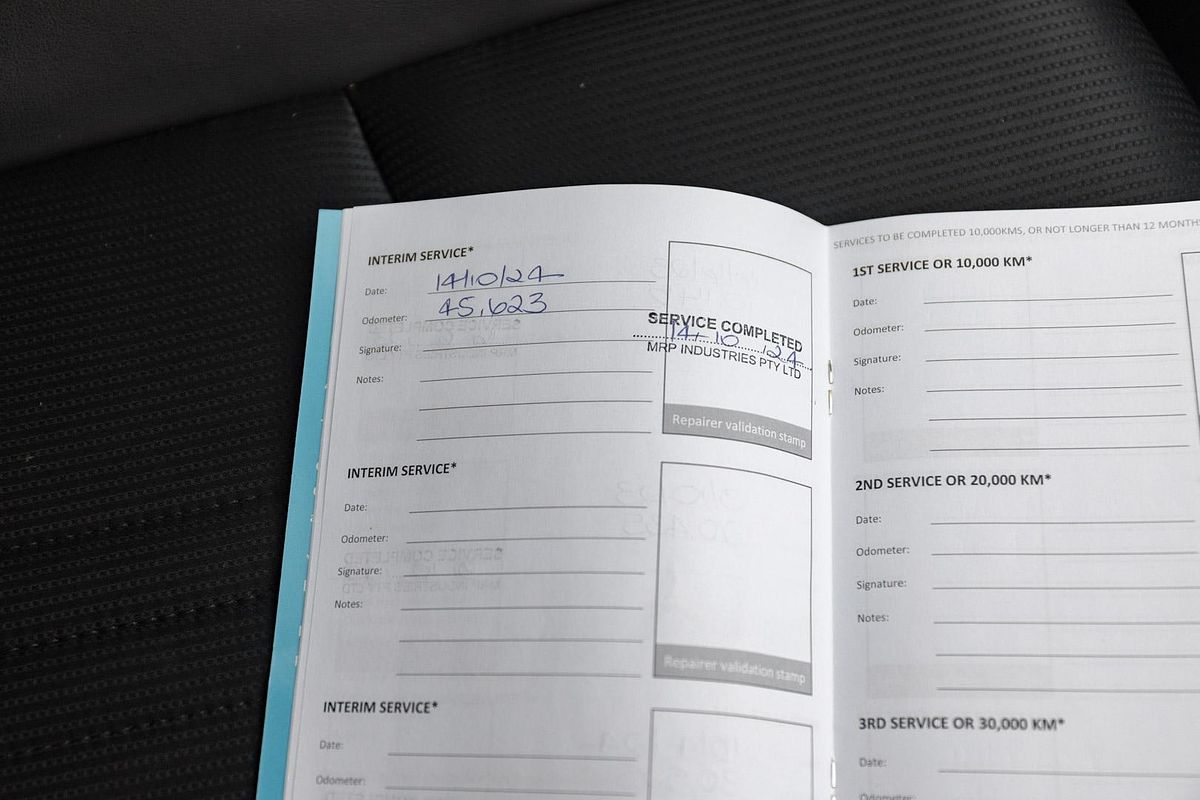 INTERIM SERVICE*
Date: 14/10/24
Odometer: 45,623
Signature:
Notes:
SERVICE COMPLETED
14-10 24
MRP INDUSTRIES PTY LTD
Repairer validation stamp
INTERIM SERVICE*
Date:
Odometer:
Signature:
Notes:
Repairer validation stamp
INTERIM SERVICE*
Date:
Odometer:
SERVICES TO BE COMPLETED 10,000KMS, OR NOT LONGER THAN 12 MONTHS
1ST SERVICE OR 10,000 KM*
Date:
Odometer:
Signature:
Notes:
2ND SERVICE OR 20,000 KM*
Date:
Odometer:
Signature:
Notes:
3RD SERVICE OR 30,000 KM*
Date:
Odometer: